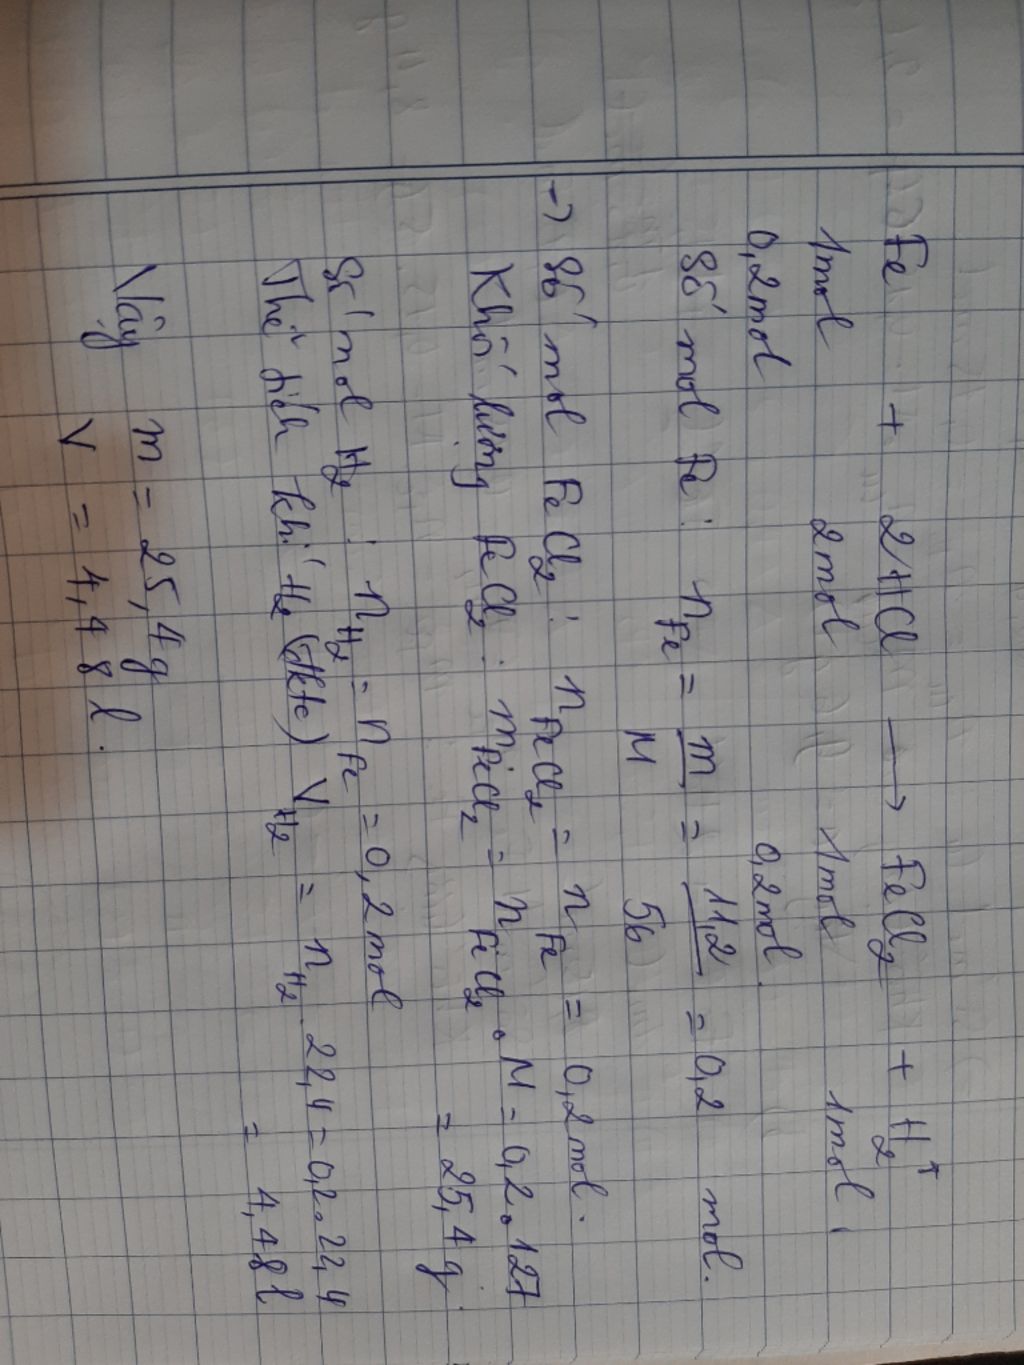 Fe + 2HCl → FeCl₂ + H₂↑
1mol 2mol 1mol 1mol
0,2mol 0,2mol
Số mol Fe: nFe = m/M = 11,2/56 = 0,2 mol.
→ Số mol FeCl₂: nFeCl₂ = nFe = 0,2mol.
Khối lượng FeCl₂: mFeCl₂ = nFeCl₂ . M = 0,2.127
= 25,4g.
Số mol H₂: nH₂ = nFe = 0,2mol
Thể tích khí H₂ (đktc) VH₂ = nH₂.22,4 = 0,2.22,4
= 4,48l
Vậy m = 25,4g
V = 4,48l.